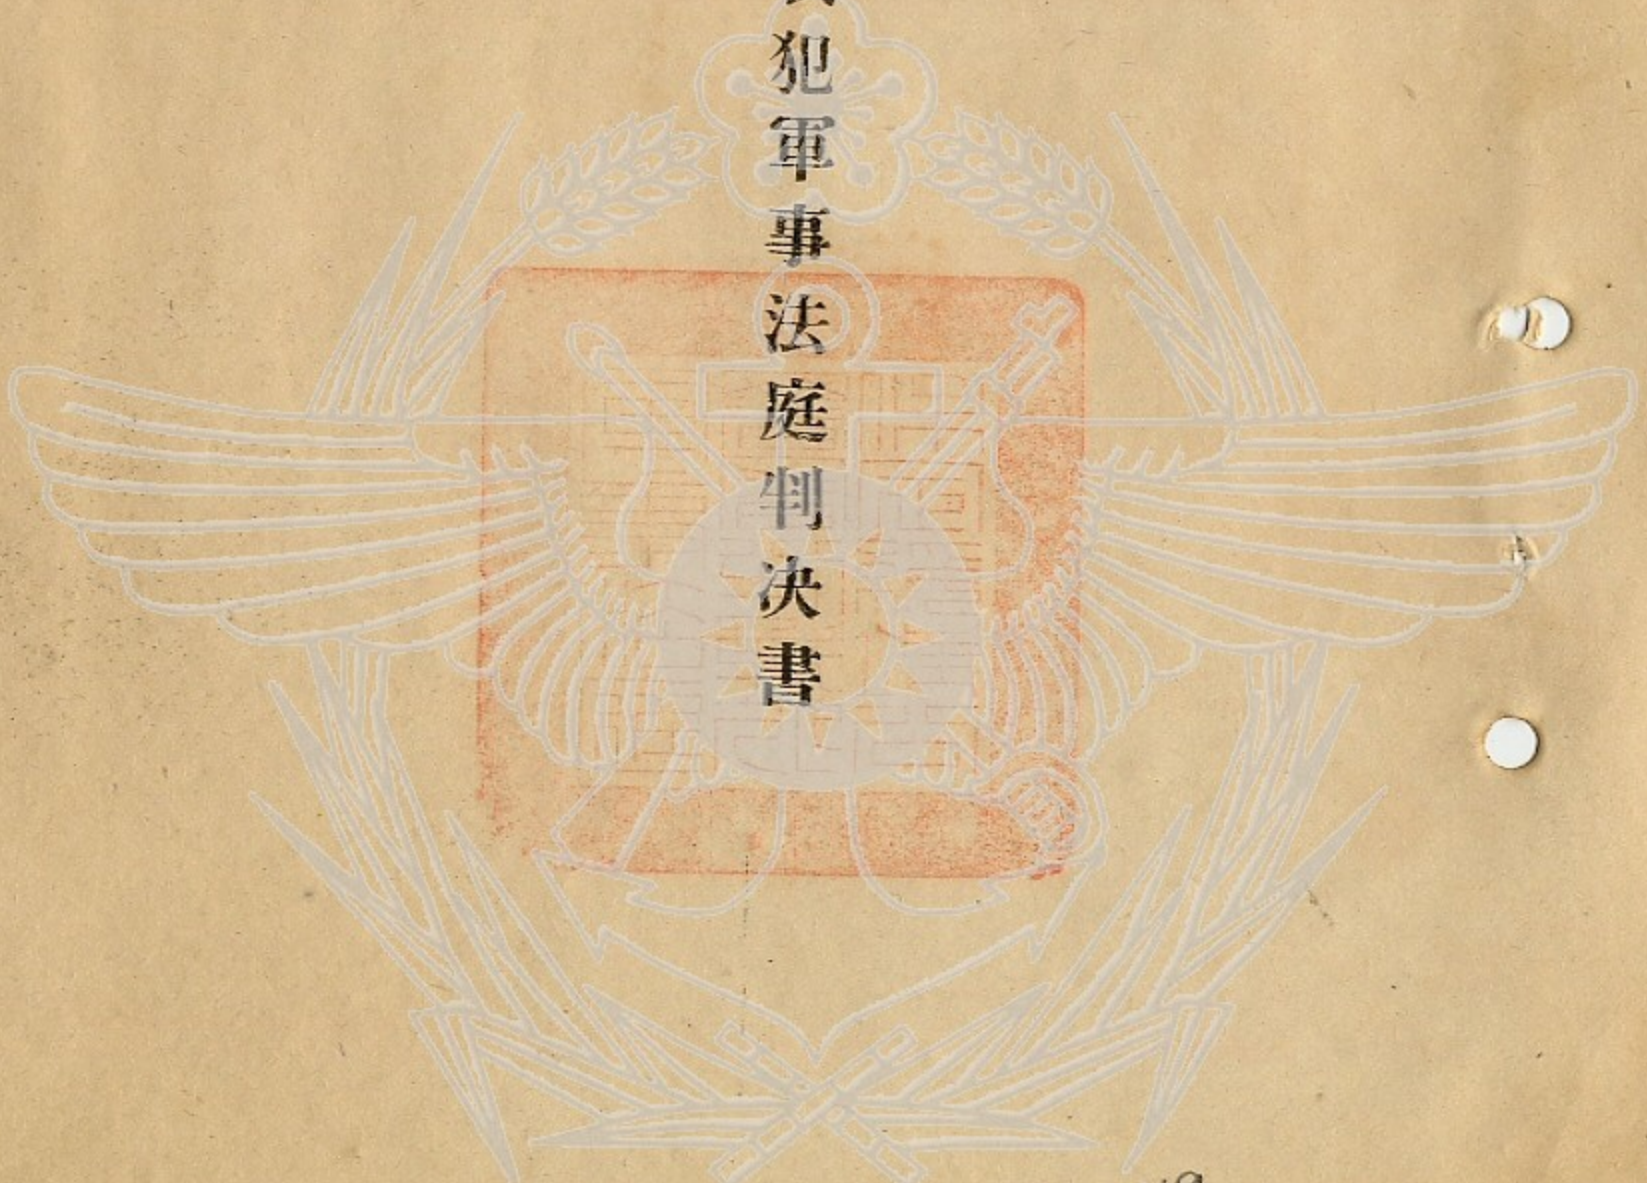 犯軍事法庭判決書